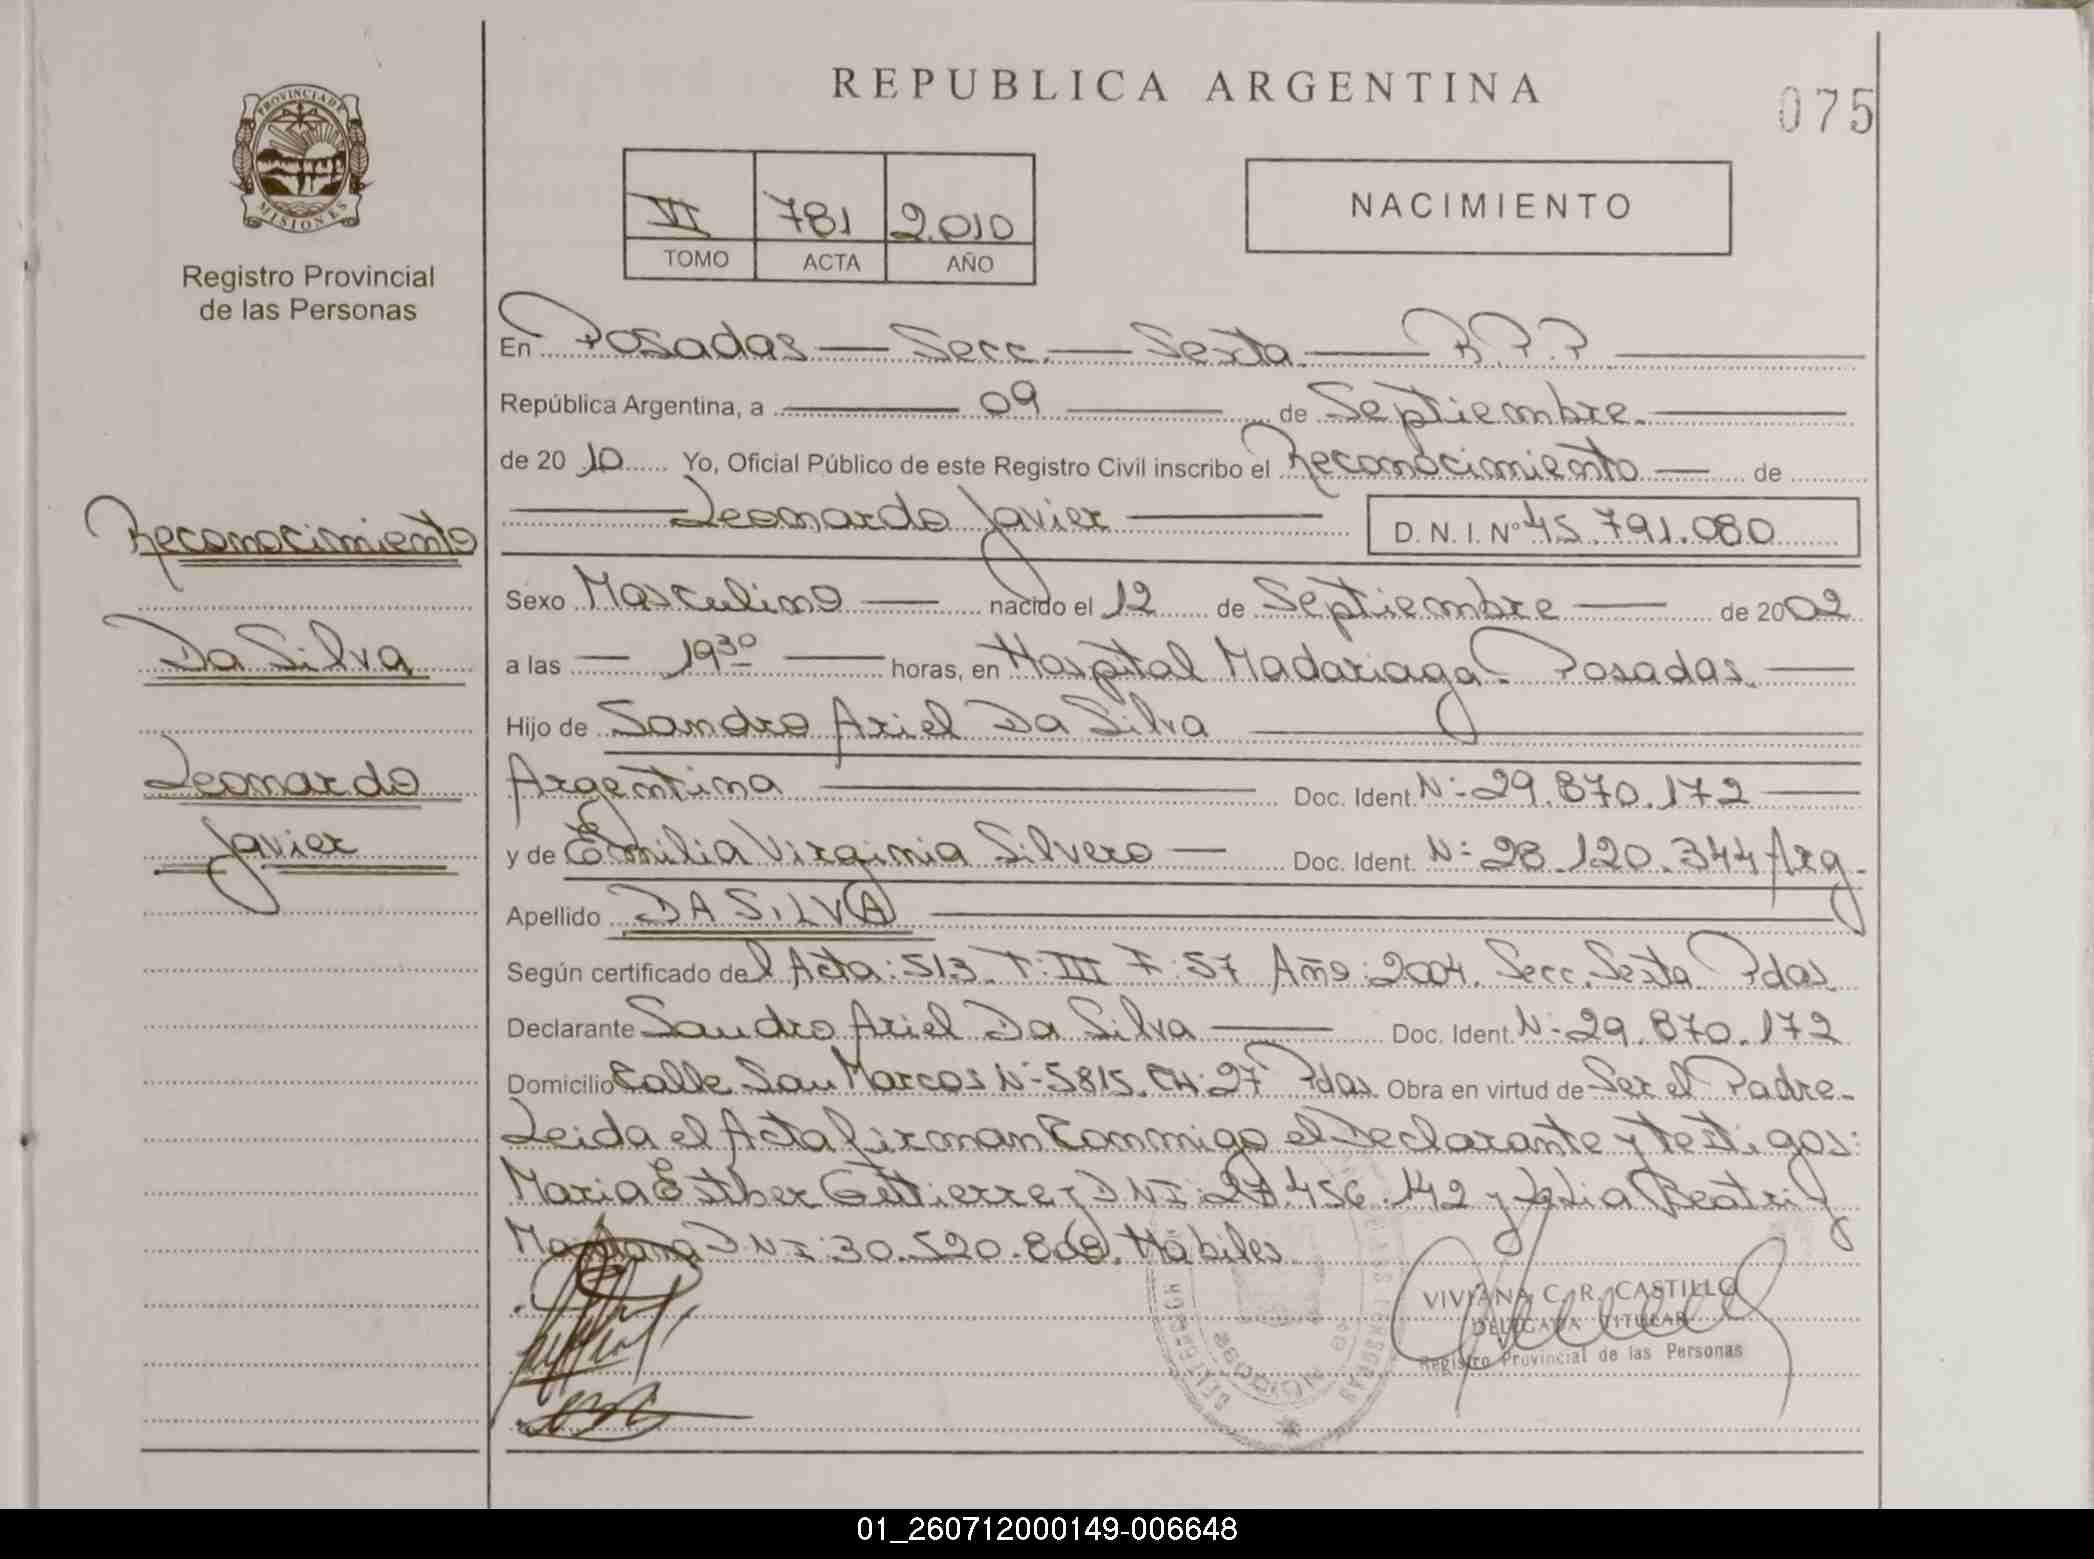 REPUBLICA ARGENTINA
075
PROVINCIA DE
MISIONES
Registro Provincial
de las Personas
VI 781 2.010
TOMO ACTA AÑO
NACIMIENTO
En Posadas — Secc. — Sexta. — R.P.P
República Argentina, a — 09 — de Septiembre.
de 20 10 Yo, Oficial Público de este Registro Civil inscribo el Reconocimiento — de
Leonardo Javier — D. N. I. Nº 45.791.080
Reconocimiento
Da Silva
Leonardo
Javier
Sexo Masculino — nacido el 12 de Septiembre — de 2002
a las — 19³⁰ — horas, en Hospital Madariaga. Posadas.
Hijo de Sandro Ariel Da Silva
Argentina — Doc. Ident. Nº 29.870.172
y de Emilia Virginia Silvero — Doc. Ident. Nº 28.120.344 Arg.
Apellido DA SILVA
Según certificado del Acta: 513. T: III F: 57 Año: 2004. Secc. Sexta Pdas.
Declarante Sandro Ariel Da Silva — Doc. Ident. Nº 29.870.172
Domicilio Calle San Marcos Nº 5815. CH: 27 Pdas. Obra en virtud de Ser el Padre.
Leida el Acta firman Conmigo el Declarante y testigos:
Maria Esther Gutierrez DNI: .456.142 y Beatriz
DNI: 30.520. Habiles.
VIVIANA C. R. CASTILLO
DELEGADA TITULAR
Registro Provincial de las Personas
01_260712000149-006648